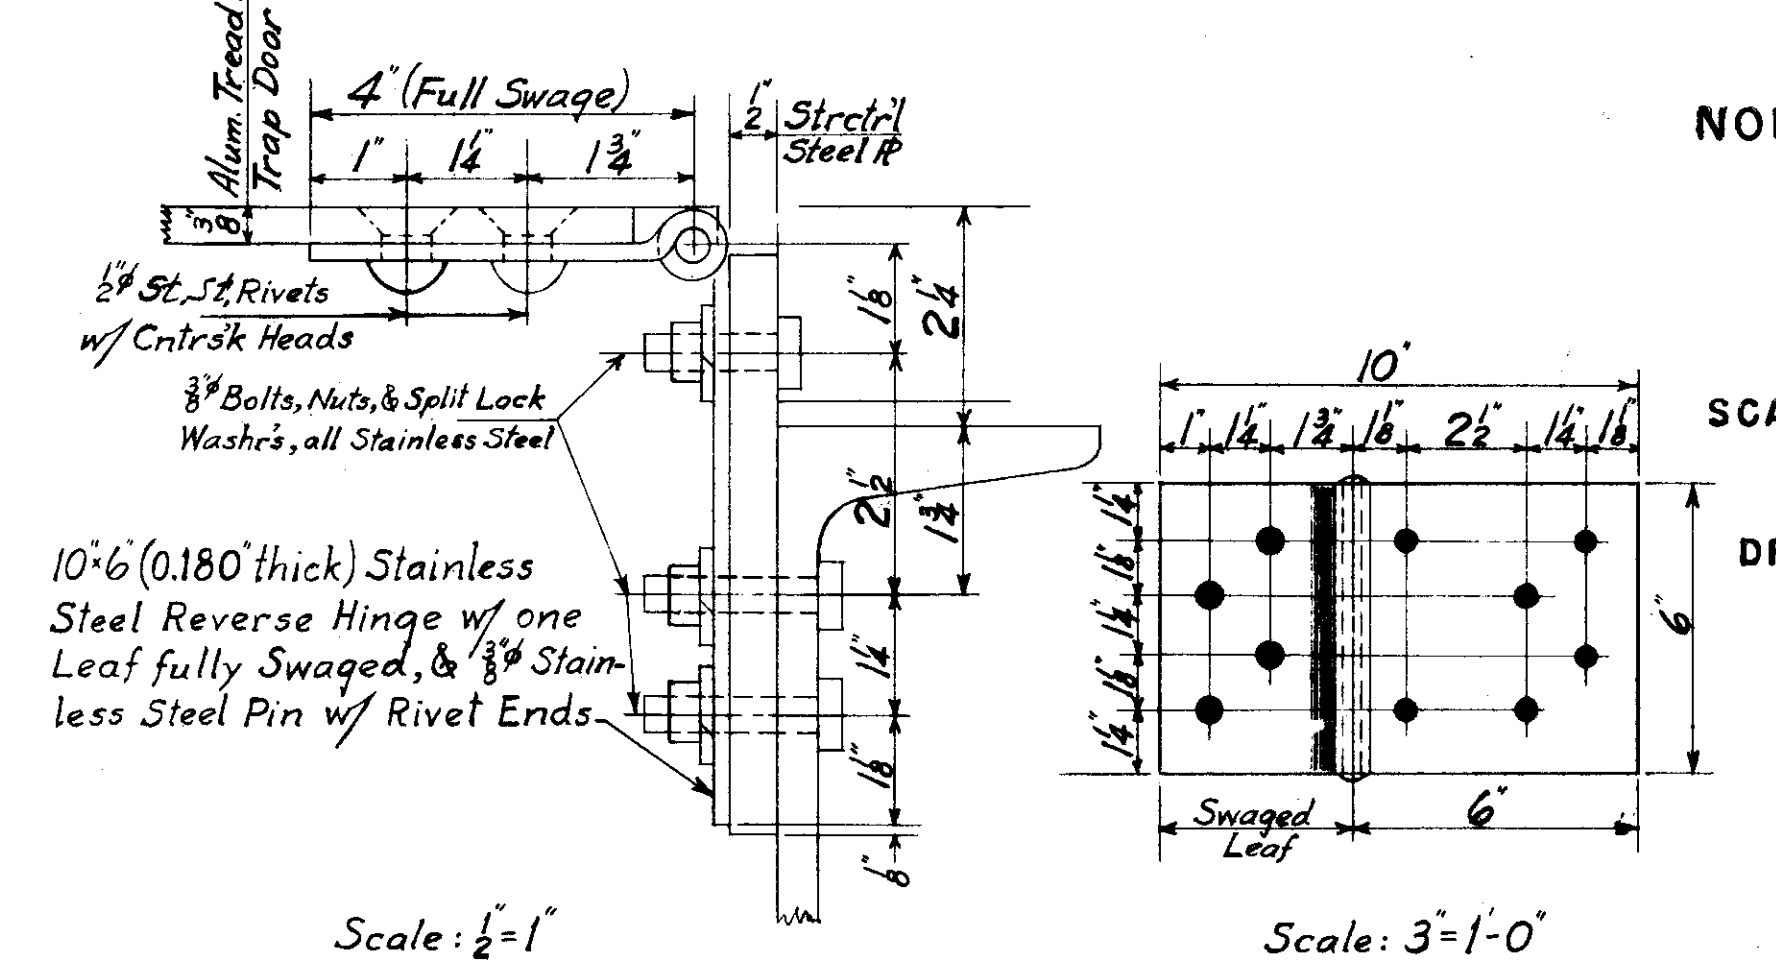 3/8" Alum. Tread
Trap Door
4" (Full Swage)
1/2" Strctr'l
Steel ℙ
1" 1 1/4" 1 3/4"
1/2"ϕ St. St. Rivets
w/ Cntrs'k Heads
3/8"ϕ Bolts, Nuts, & Split Lock
Washr's, all Stainless Steel
10"x6" (0.180" thick) Stainless
Steel Reverse Hinge w/ one
Leaf fully Swaged, & 3/8"ϕ Stain-
less Steel Pin w/ Rivet Ends
1 1/8"
2 1/4"
2 1/2"
1 3/4"
1 1/4"
1 1/8"
1/8"
Scale: 1/2"=1"
10"
1" 1 1/4" 1 3/4" 1 1/8" 2 1/2" 1 1/4" 1 1/8"
1 1/4"
1 1/8"
1 1/4"
1 1/8"
1 1/4"
6"
Swaged
Leaf
6"
Scale: 3"=1'-0"
NO
SCA
D